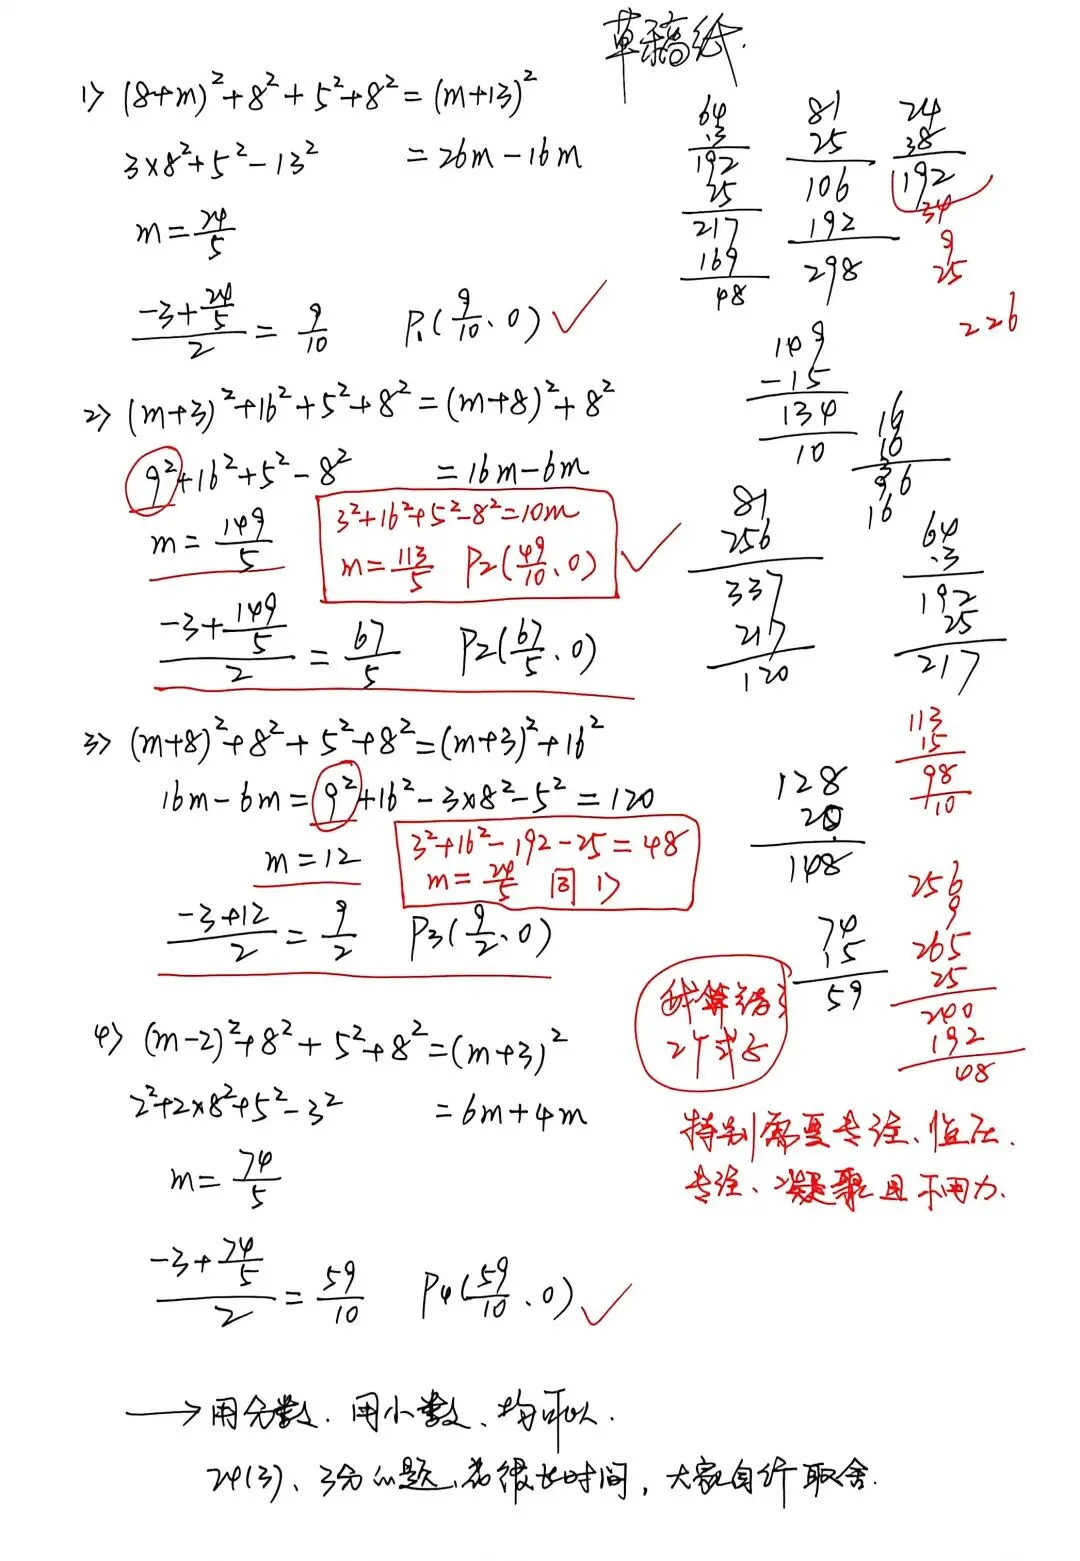 草稿纸.
1> (8+m)²+8²+5²+8²=(m+13)²
3×8²+5²-13² =26m-16m
m=24/5
(-3+24/5)/2=9/10 P₁(9/10、0) ✓
2> (m+3)²+16²+5²+8²=(m+8)²+8²
9²+16²+5²-8² =16m-6m
m=149/5
3²+16²+5²-8²=10m
m=113/5 P2(49/10、0) ✓
(-3+149/5)/2=67/5 P2(67/5、0)
3> (m+8)²+8²+5²+8²=(m+3)²+16²
16m-6m=9²+16²-3×8²-5²=120
m=12
3²+16²-192-25=48
m=24/5 同 1>
(-3+12)/2=9/2 P3(9/2、0)
4> (m-2)²+8²+5²+8²=(m+3)²
2²+2×8²+5²-3² =6m+4m
m=74/5
(-3+74/5)/2=59/10 P4(59/10、0) ✓
→用分数、用小数、均可以.
24(3)、3分小题、花很长时间,大家自行取舍.
64
.3
192
25
217
169
48
81
25
106
192
298
24
38
192
34
9
25
226
149
-15
134
10
16
10
96
16
81
256
337
217
120
64
.3
192
25
217
113
15
98
10
128
20
148
74
15
59
256
9
265
25
240
192
48
我算错了
2个式子
特别需要专注、
专注、凝聚且不用力.